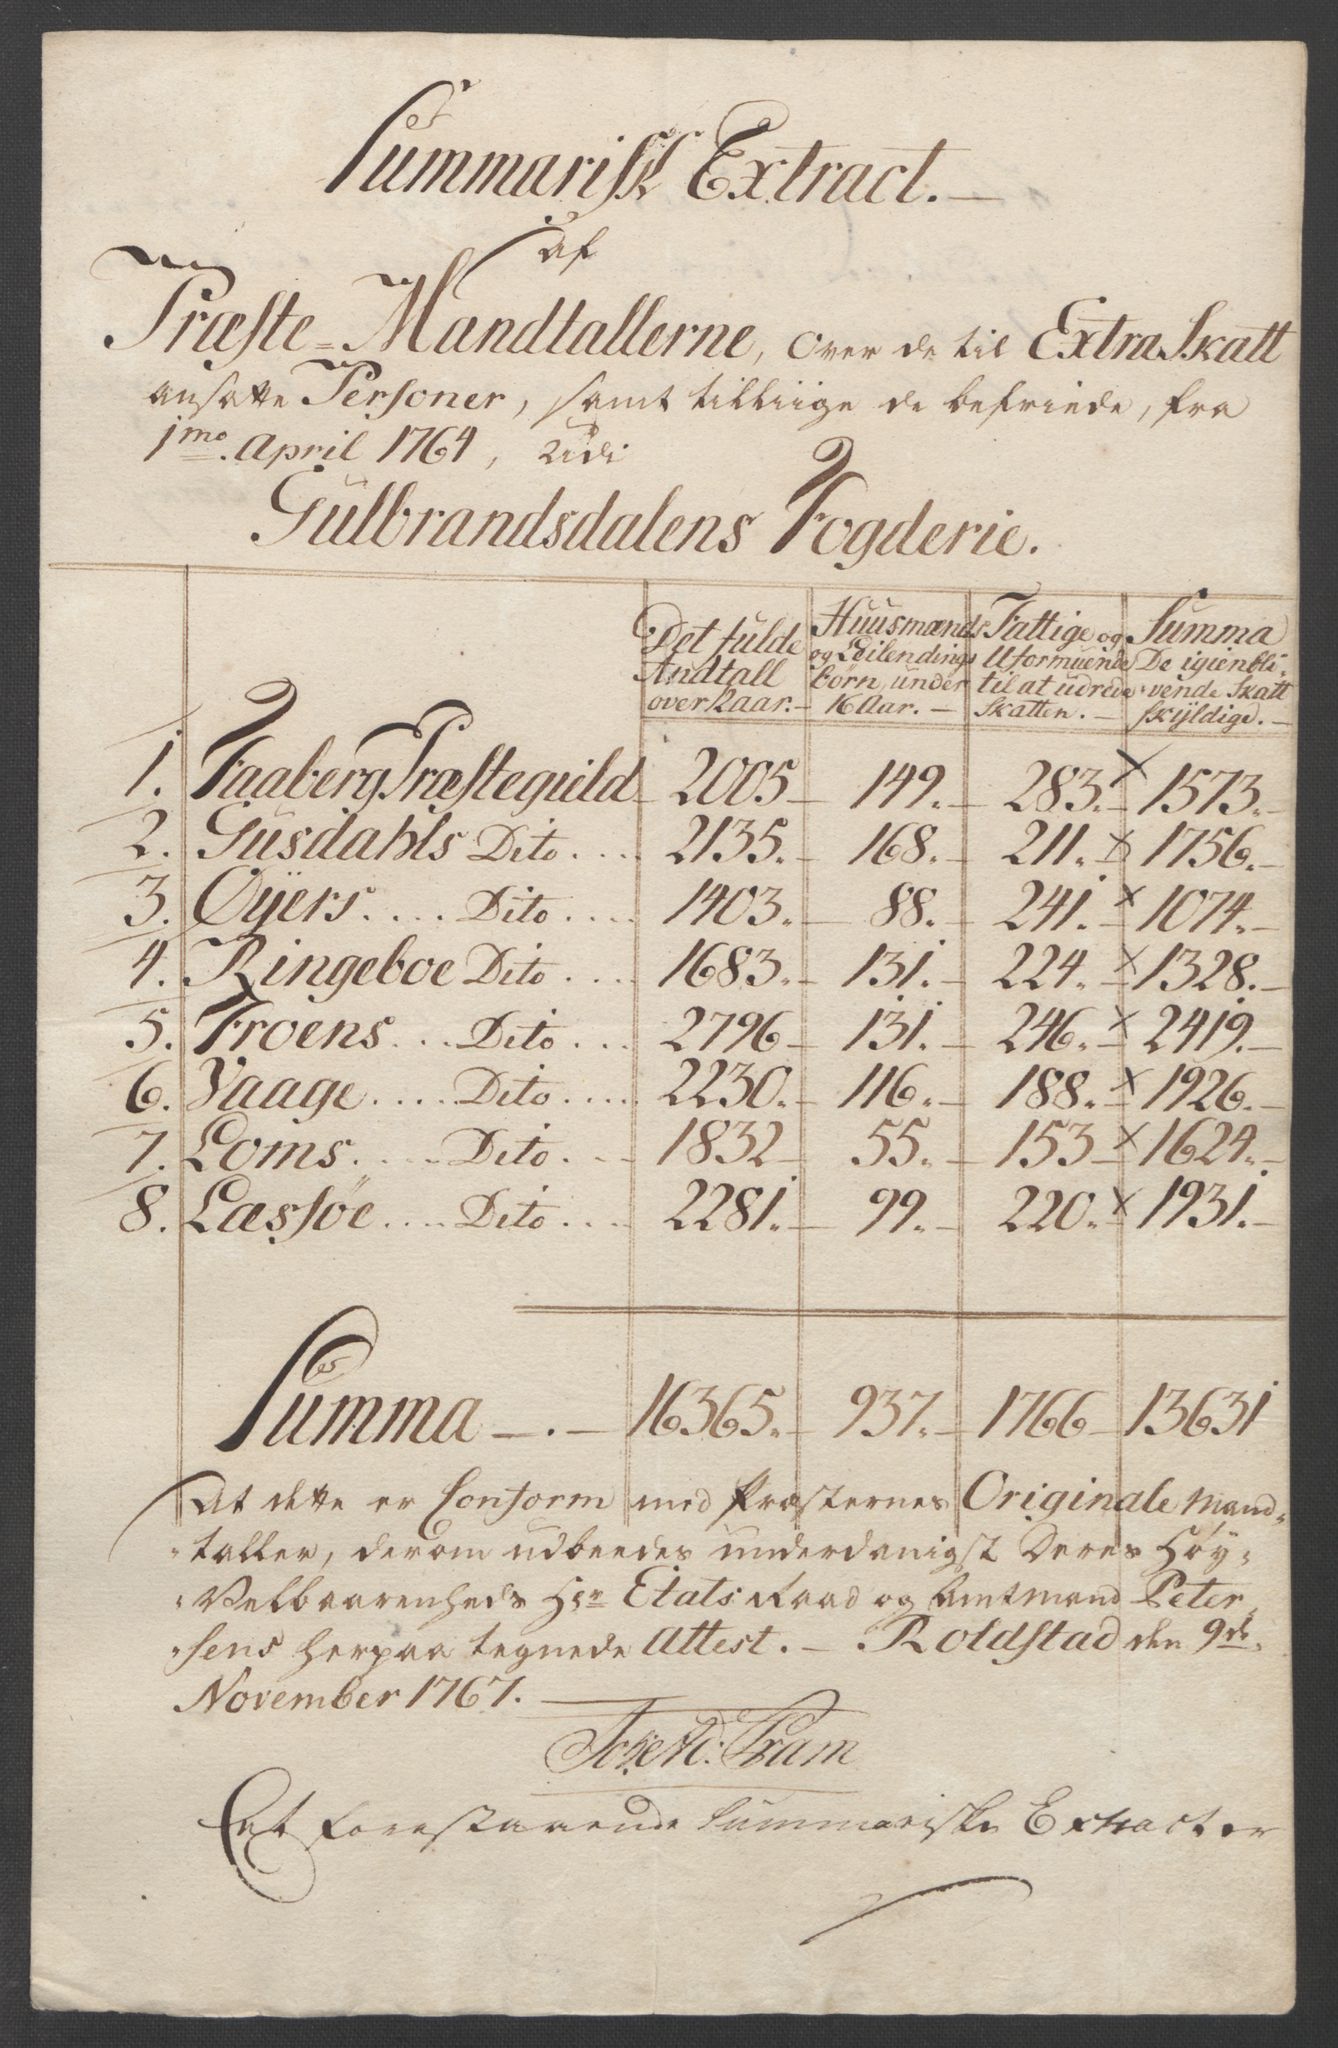 Summarisk Extract.
af
Præste-Mandtallerne, over de til Extra Skatt
ansatte Personer, samt tilliige de befriede, fra
1mo. April 1764, udi
Gulbrandsdalens Fogderie.
Det fulde Andtall over 12 aar. Huusmænds og Leilendings börn, under 16 Aar. Fattige og Uformuende til at udrede Skatten. Summa De igienbli-vende Skatt skÿldige.
1. Faaberg Præstegield 2005 149. 283. x 1573.
2. Gusdahls Dito 2135. 168. 211. x 1756.
3. Oÿers Dito 1403. 88. 241. x 1074.
4. Ringeboe Dito 1683. 131. 224. x 1328.
5. Froens Dito 2796 131. 246. x 2419.
6. Vaage Dito 2230. 116. 188. x 1926.
7. Loms Dito 1832 55. 153 x 1624.
8. Læssöe Dito 2281. 99. 220. x 1931.
Summa 16365. 937. 1766 13631
At dette er Conform med Præsternes Originale Mand-
taller, derom udbeedes underdanigst Deres Höy-
Velbaarenheds Hr Etats Raad og Amtmand Peter-
sens herpaa tegnede Attest. Roldstad den 9de.
November 1767.
Pram
At forestaaende Summariske Extract er